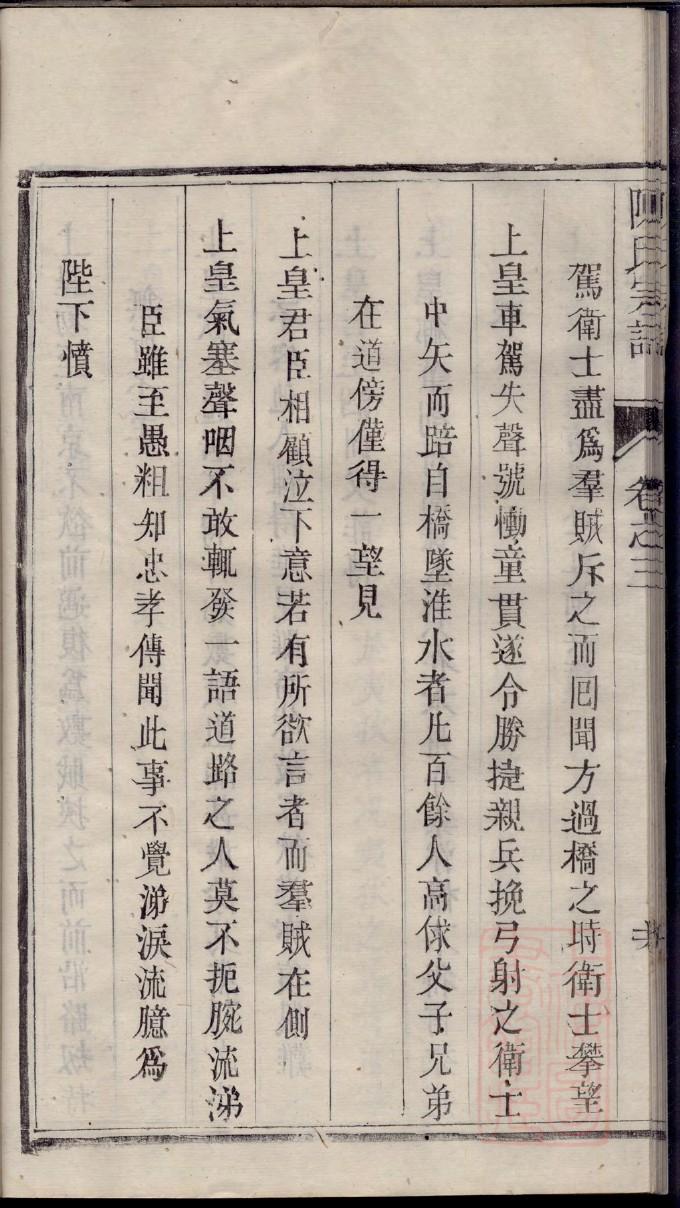 陳氏宗譜 卷之三
駕衛士盡爲羣賊斥之而囘聞方過橋之時衛士攀望
上皇車駕失聲號慟童貫遂令勝捷親兵挽弓射之衛士
中矢而踣自橋墜淮水者凡百餘人高俅父子兄弟
在道傍僅得一望見
上皇君臣相顧泣下意若有所欲言者而羣賊在側
上皇氣塞聲咽不敢輒發一語道路之人莫不扼腕流涕
臣雖至愚粗知忠孝傳聞此事不覺涕淚流臆爲
陛下憤